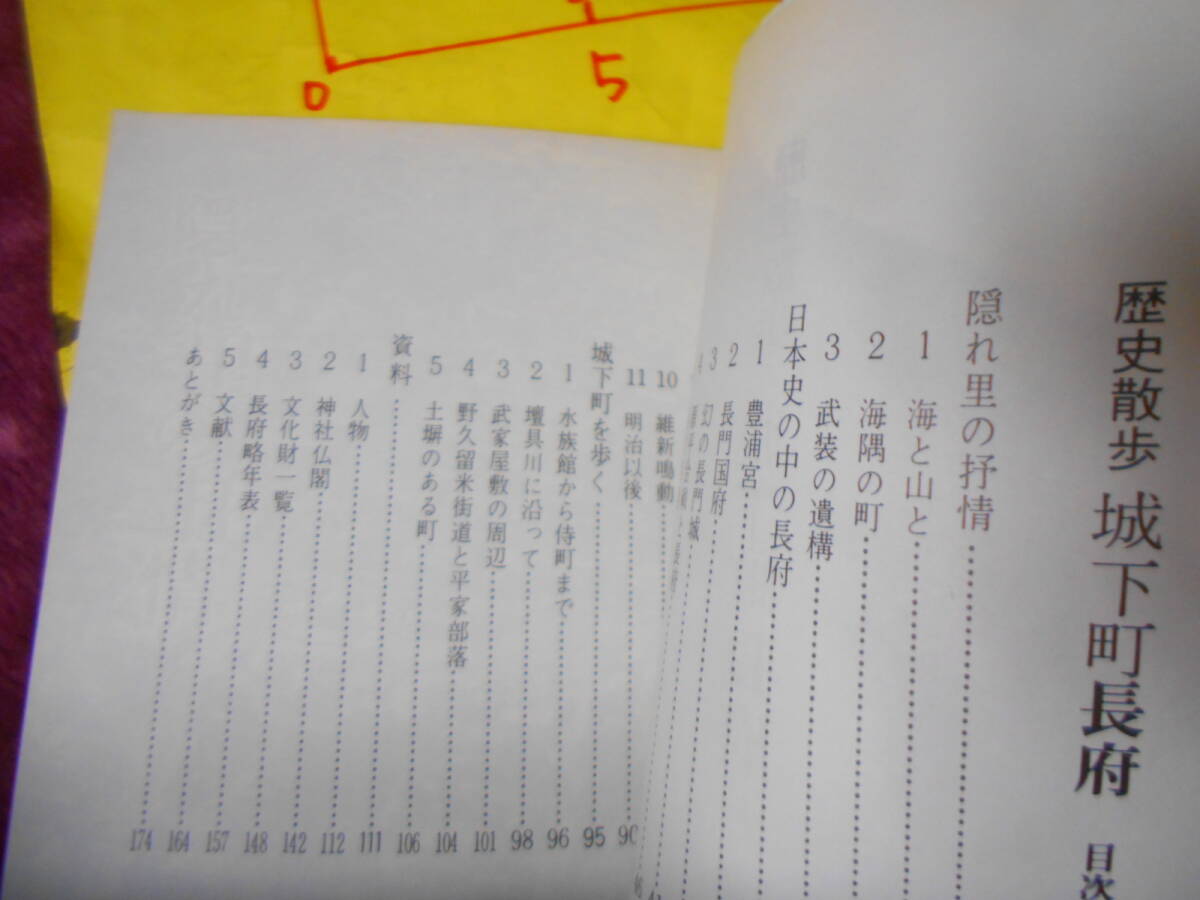 0
5
歴史散歩 城下町長府 目次
隠れ里の抒情
1 海と山と
2 海隅の町
3 武装の遺構
日本史の中の長府
1 豊浦宮
2 長門国府
3 幻の長門城
4
10 維新鳴動
11 明治以後 90
城下町を歩く 95
1 水族館から侍町まで 96
2 壇具川に沿って 98
3 武家屋敷の周辺 101
4 野久留米街道と平家部落 104
5 土塀のある町 106
資料 111
1 人物 112
2 神社仏閣 142
3 文化財一覧 148
4 長府略年表 157
5 文献 164
あとがき 174